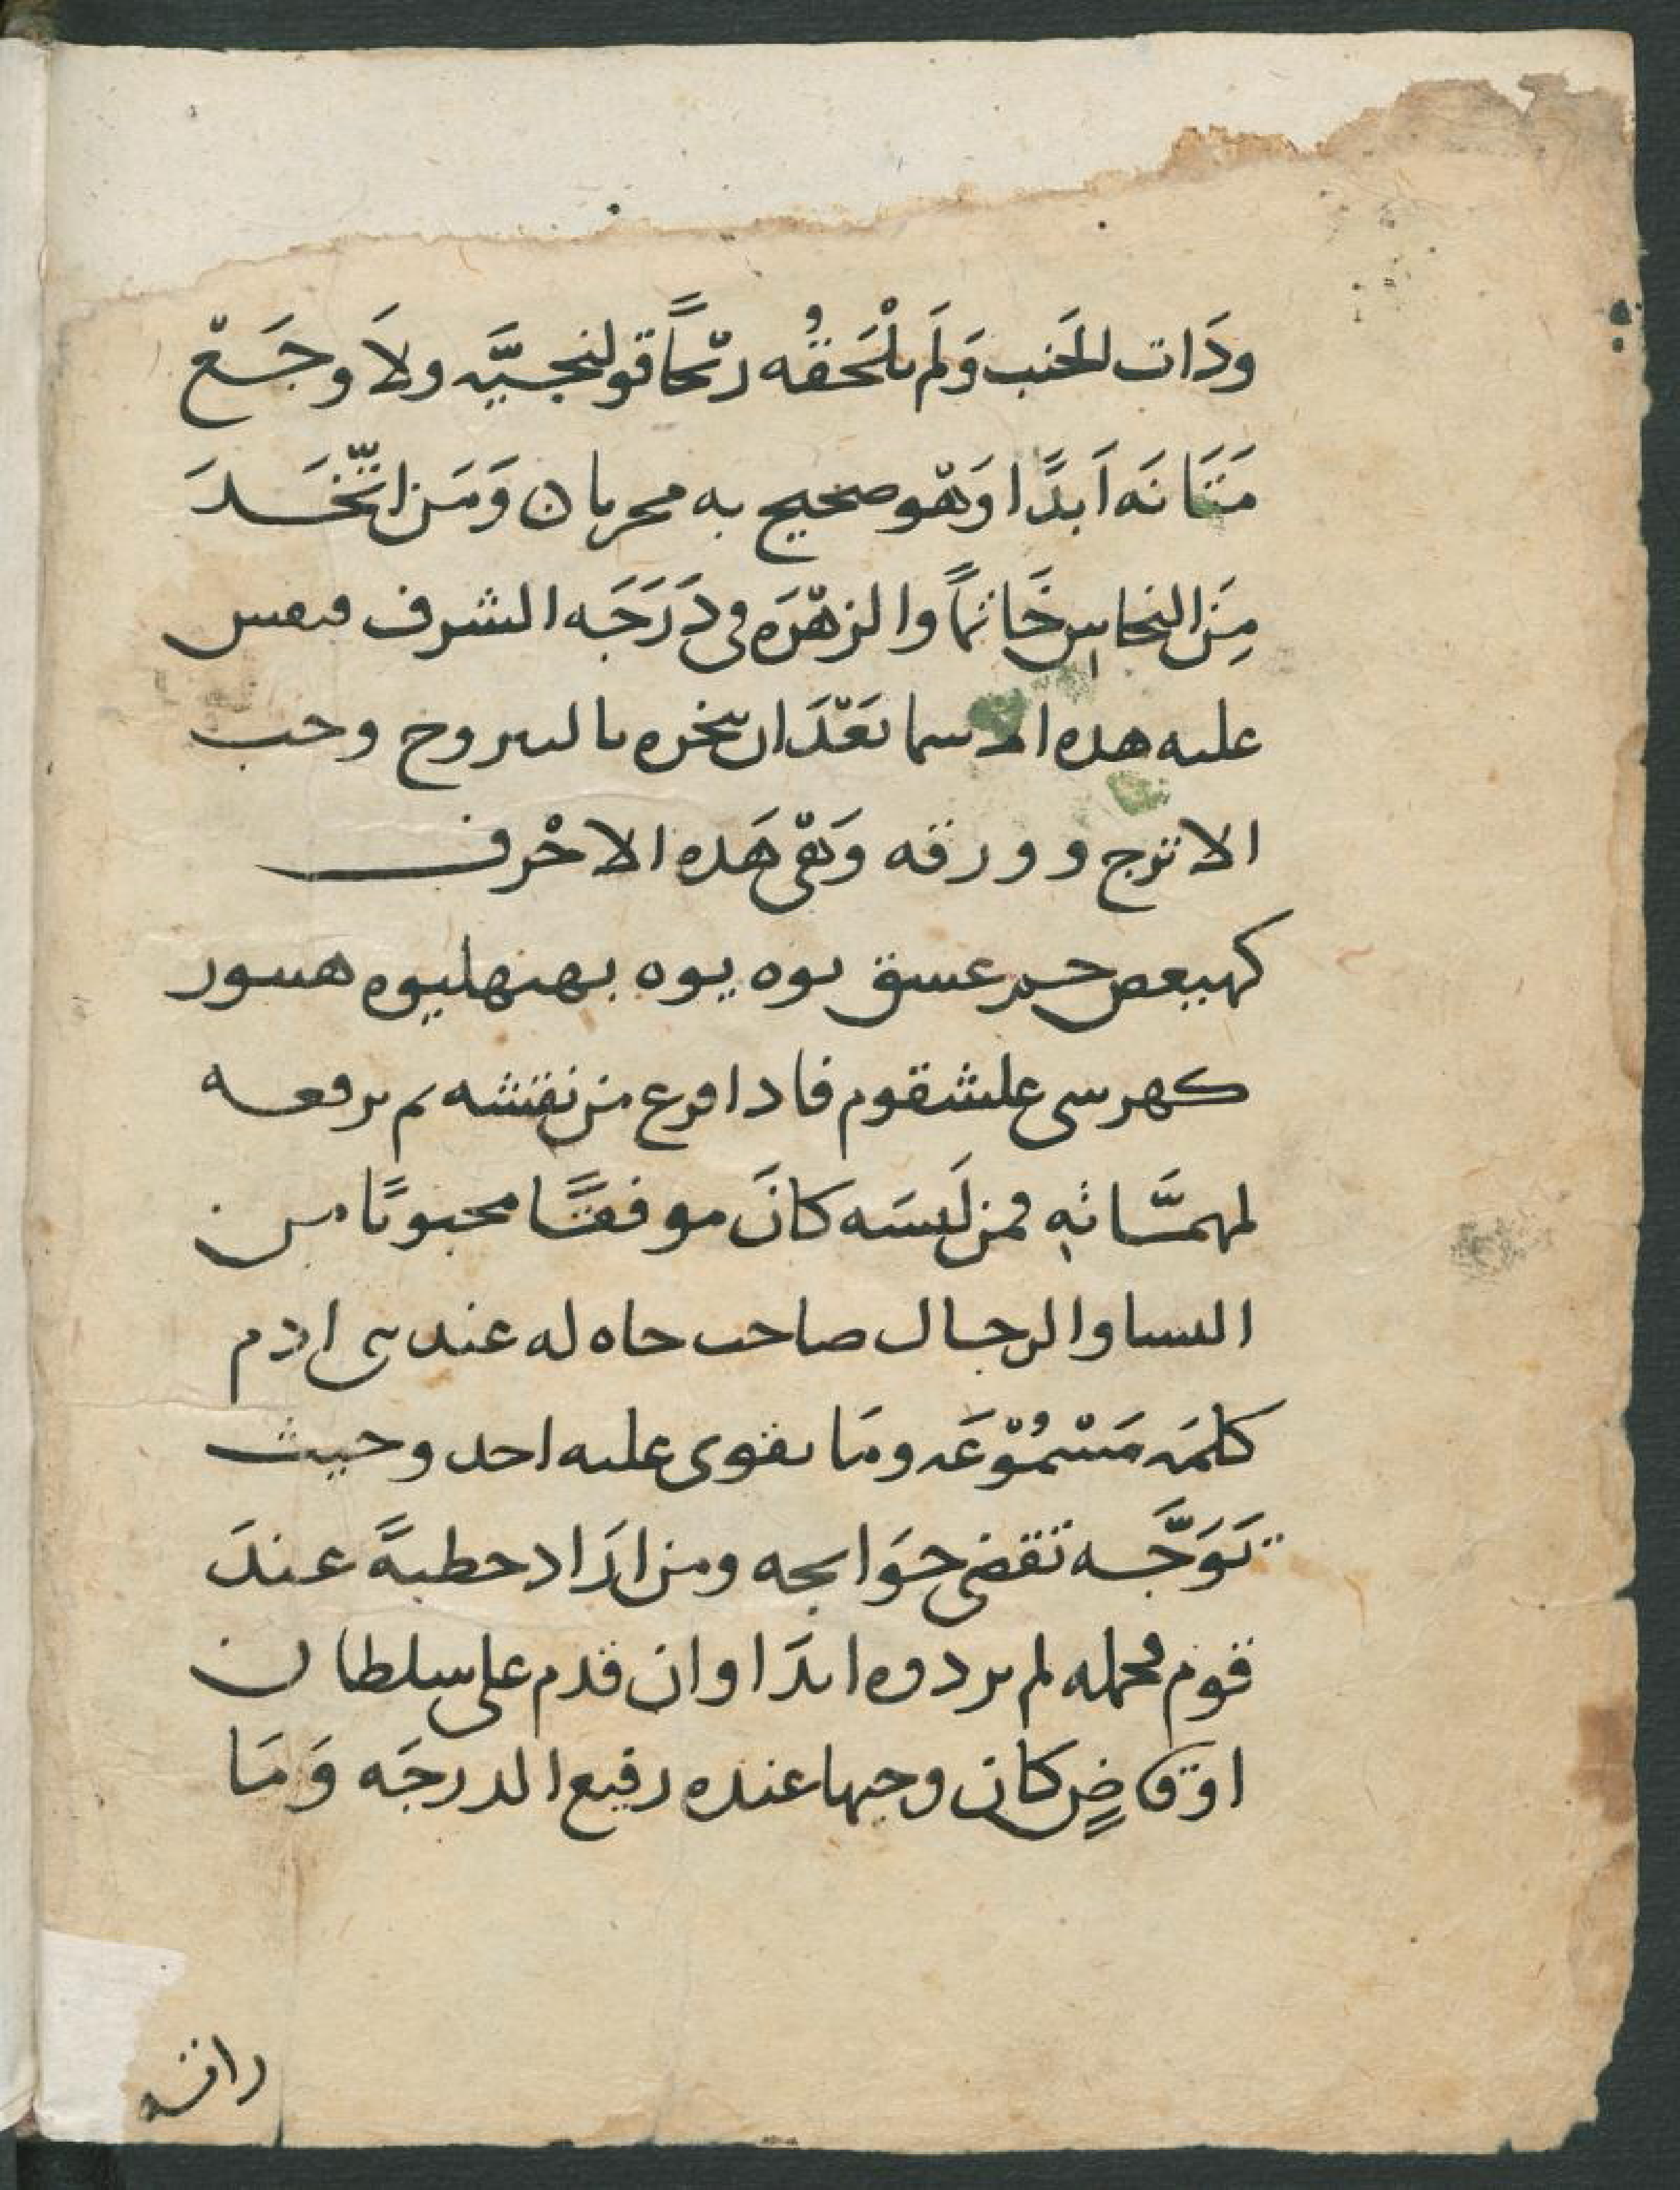 وذَات الجَنب وَلَم يلْحَقْه ريْحًا قولنجيَّه ولاَ وجَعْ
مَثَانَه اَبدًا وَهْو صحيح به مجربان وَمَن اتّخَدَ
مِنَ النحاسِ خَاتماً والزهْرَه فى دَرَجَه الشرف فينقش
عليه هده الاسما بَعْدَ ان يبخره باليبروح وحب
الاترج وورقه وَهْى هَده الاحْرف
كهيعص حم عسق يوه يوه بهنهليوه هسور
كهرسى علشقوم فادا فرغ من نقشه ثم يرفعه
لمهمَّاتهِ فمن لَبسَه كانَ موفقًا محبوبًا من
النسا والرجال صاحب جاه له عند بنى ادم
كلمَه مَسْمُوْعَه ومَا يقوى عليه احد وحيث
تَوَجَّه تقضى حوَايجه ومن ارَاد خطبةً عندَ
قوم فحمله لم يردوه ابدَا وان قدم على سلطان
او قاضٍ كان وجيها عنده رفيع الدرجَه وَمَا